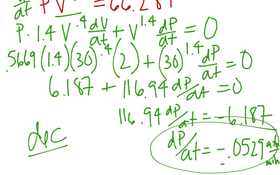 d/dt PV^1.4 = 66.287
P · 1.4 V^.4 dV/dt + V^1.4 dP/dt = 0
.5669 (1.4)(30)^.4 (2) + (30)^1.4 dP/dt = 0
6.187 + 116.94 dP/dt = 0
116.94 dP/dt = -6.187
dec
dP/dt = -.0529